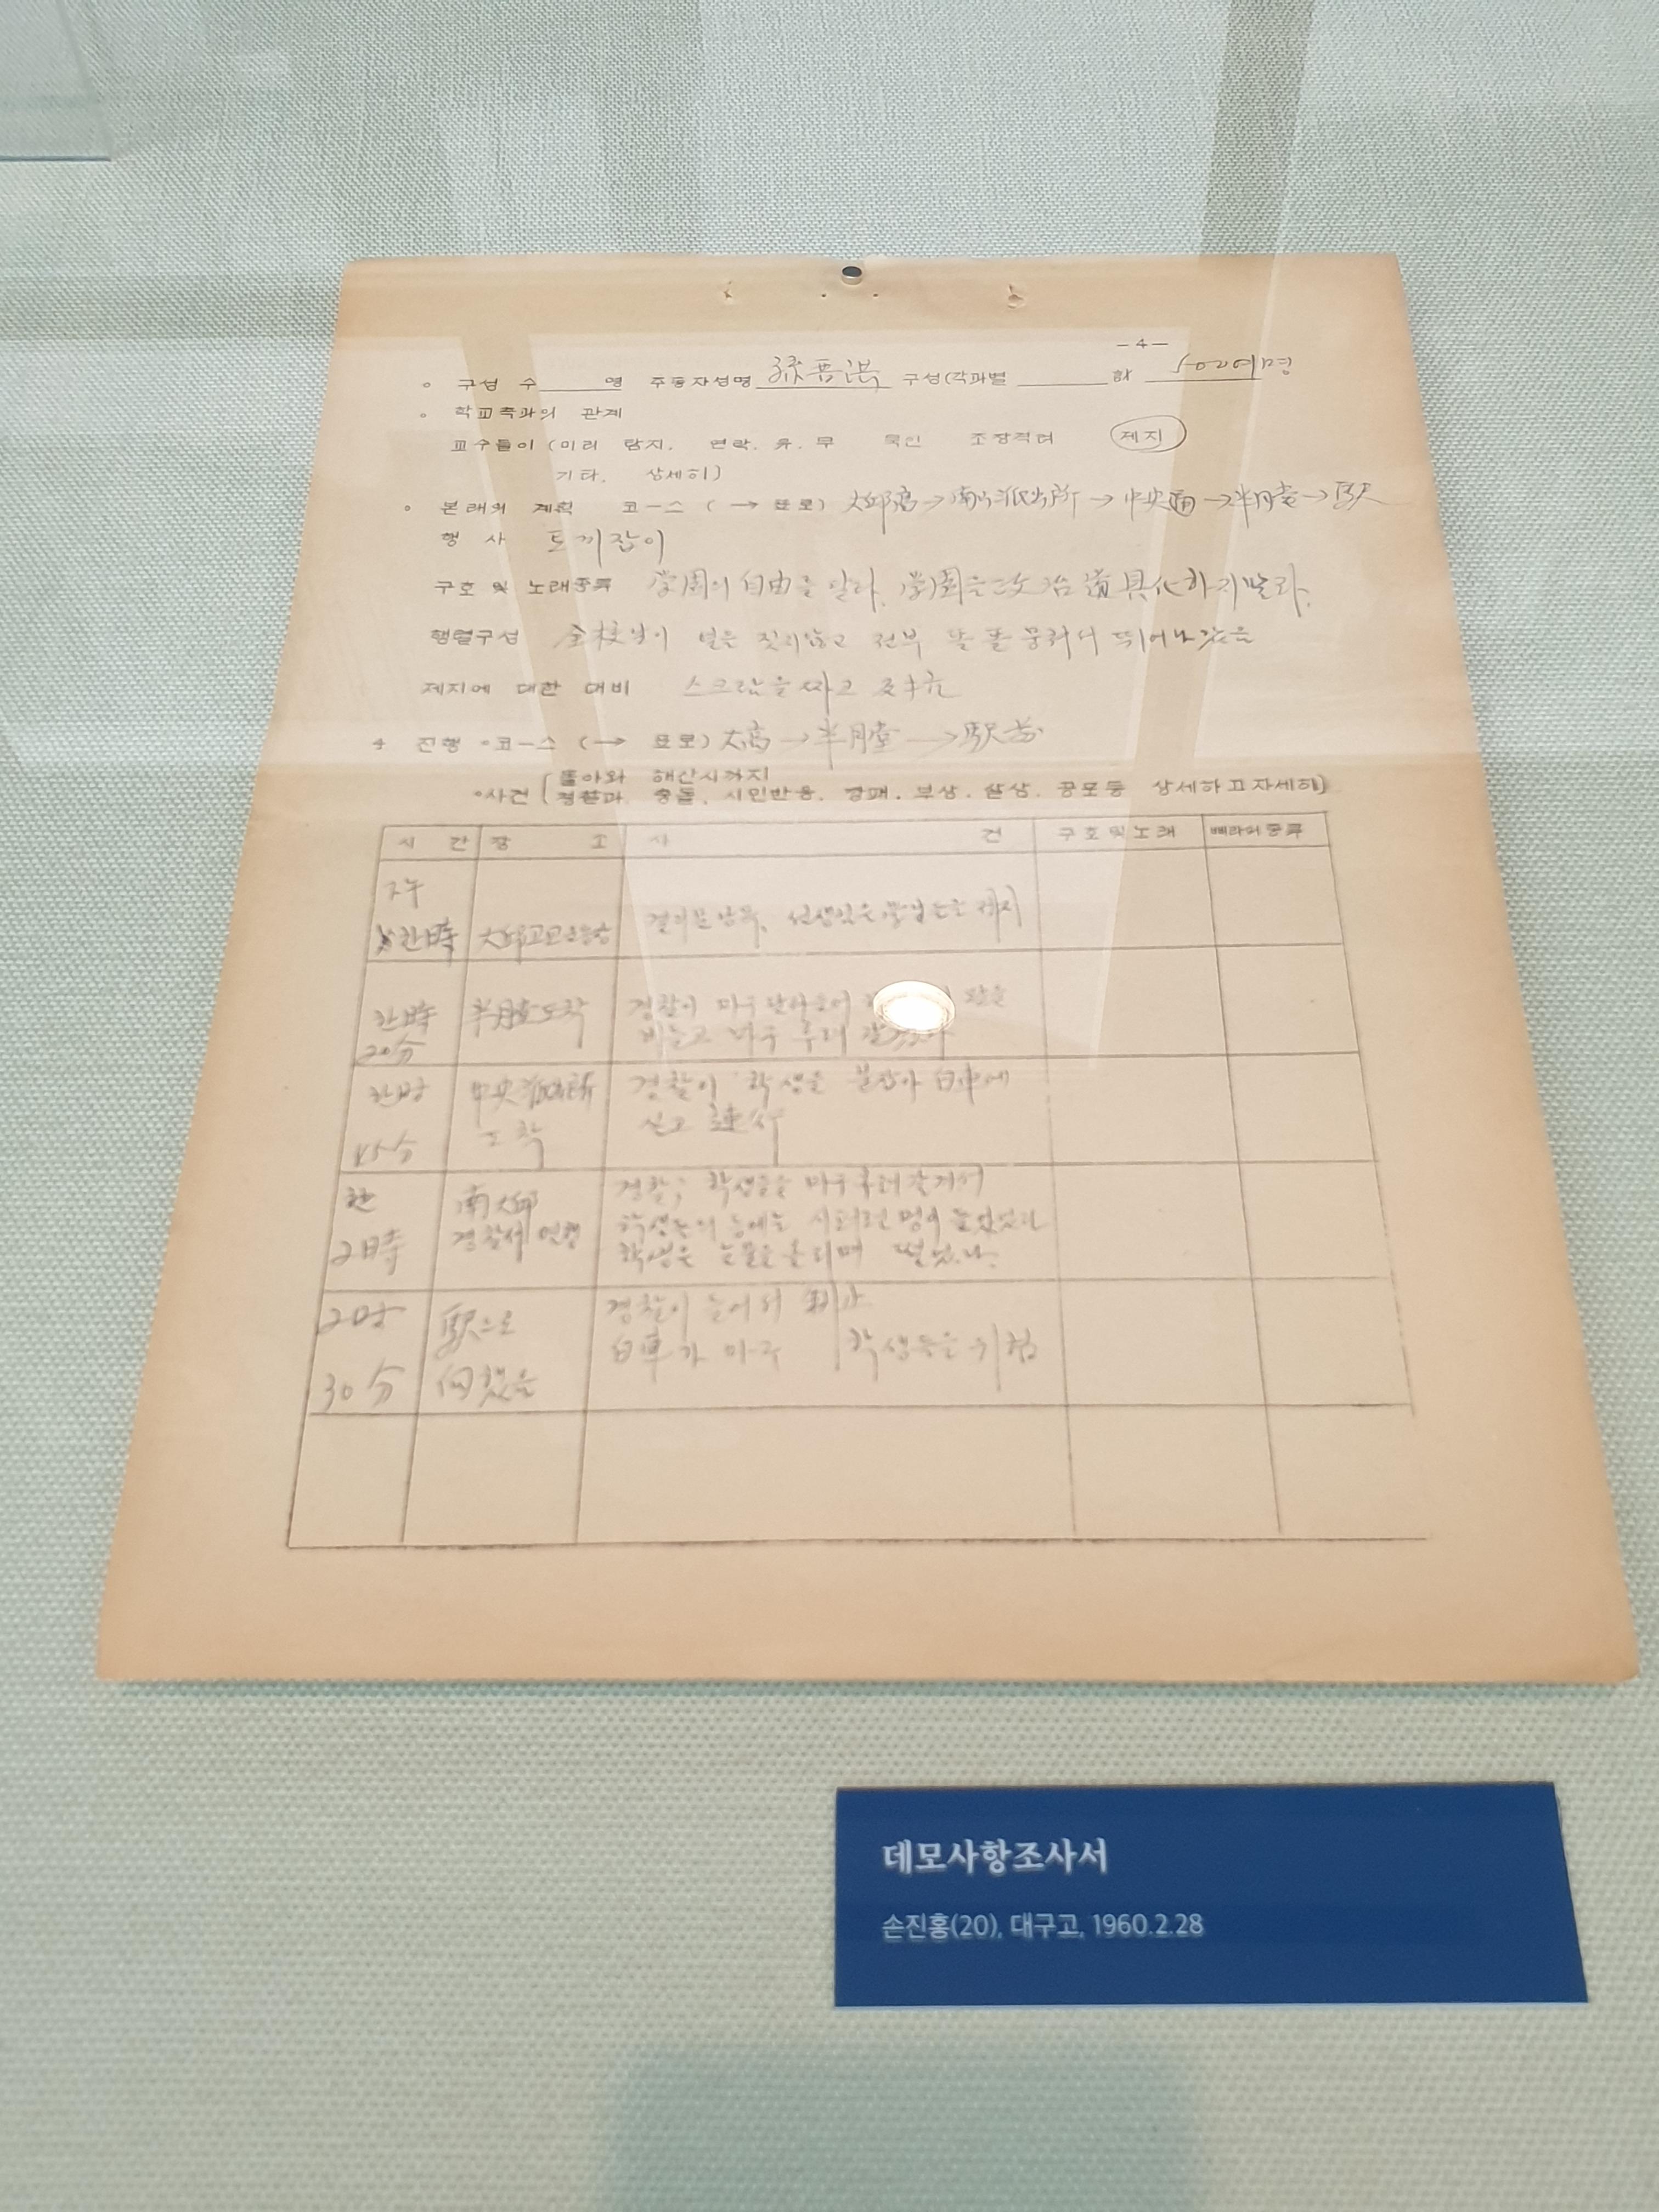 －4－
○ 구성 수 명 주동자성명 孫晋洪 구성(각과별 計 500여명
○ 학교측과의 관계
교수들이 (미리 탐지. 연락. 유. 무 묵인 조장격려 제지
기타. 상세히)
○ 본래의 계획 코-스 ( → 표로) 大邱高→南部派出所→中央通→半月堂→駅
행 사 토끼잡이
구호 및 노래종류 学園의 自由를 달라. 学園은 政治道具化하지말라.
행렬구성 全校生이 열은 짓지않고 전부 똘똘뭉쳐서 뛰어나갔음
제지에 대한 대비 스크랍을 짜고 反抗
4 진행 ○코-스 (→ 표로) 大高→半月堂→駅前
돌아와 해산시까지
○사건 (경찰과 충돌. 시민반응. 깡패. 부상. 살상. 공포등 상세하고자세히)
시 간 장 소 사 건 구호및노래 삐라의종류
한時 大邱高 결의문 낭독. 선생님은 제지
한時 半月堂도착 경찰이 마구 달려들어
20分 마구
한時 中央派出所 경찰이 학생을 붙잡아 白車에
45分 도착 싣고 連行
한 南大邱 경찰, 학생들을 마구 후려갈겨서
2時 경찰서 연행 학생들의 등에는 시퍼런 멍이 들었었다
학생은 눈물을 흘리며 떨었다.
2時 駅으로 경찰이 늘어서 制止
30分 向했음 白車가 마구 학생들을 위협
데모사항조사서
손진홍(20), 대구고, 1960.2.28